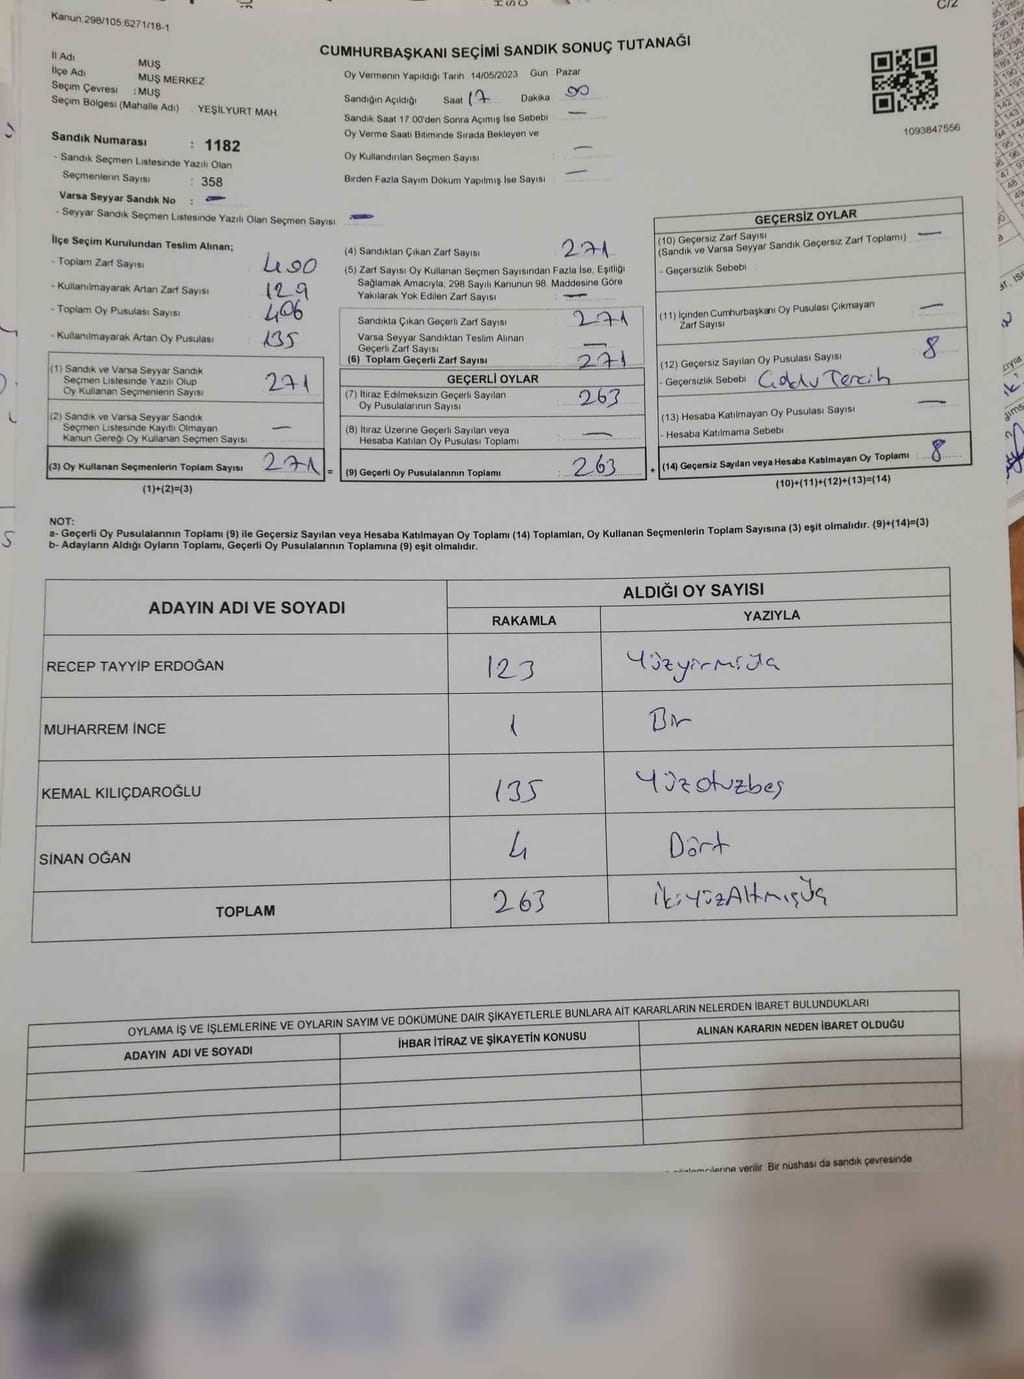 Kanun.298/105.6271/18-1
C/2
CUMHURBAŞKANI SEÇİMİ SANDIK SONUÇ TUTANAĞI
İl Adı MUŞ
İlçe Adı MUŞ MERKEZ
Seçim Çevresi :MUŞ
Seçim Bölgesi (Mahalle Adı) YEŞİLYURT MAH.
Sandık Numarası : 1182
- Sandık Seçmen Listesinde Yazılı Olan
Seçmenlerin Sayısı : 358
Varsa Seyyar Sandık No : —
- Seyyar Sandık Seçmen Listesinde Yazılı Olan Seçmen Sayısı —
Oy Vermenin Yapıldığı Tarih 14/05/2023 Gün Pazar
Sandığın Açıldığı Saat 17 Dakika 00
Sandık Saat 17.00'den Sonra Açımış İse Sebebi —
Oy Verme Saati Bitiminde Sırada Bekleyen ve
Oy Kullandırılan Seçmen Sayısı : —
Birden Fazla Sayım Döküm Yapılmış İse Sayısı : —
1093847556
İlçe Seçim Kurulundan Teslim Alınan;
- Toplam Zarf Sayısı 400
- Kullanılmayarak Artan Zarf Sayısı 129
- Toplam Oy Pusulası Sayısı 406
- Kullanılmayarak Artan Oy Pusulası 135
(1) Sandık ve Varsa Seyyar Sandık
Seçmen Listesinde Yazılı Olup
Oy Kullanan Seçmenlerin Sayısı 271
(2) Sandık ve Varsa Seyyar Sandık
Seçmen Listesinde Kayıtlı Olmayan
Kanun Gereği Oy Kullanan Seçmen Sayısı —
(3) Oy Kullanan Seçmenlerin Toplam Sayısı 271 =
(1)+(2)=(3)
(4) Sandıktan Çıkan Zarf Sayısı 271
(5) Zarf Sayısı Oy Kullanan Seçmen Sayısından Fazla İse, Eşitliği
Sağlamak Amacıyla, 298 Sayılı Kanunun 98. Maddesine Göre
Yakılarak Yok Edilen Zarf Sayısı : —
Sandıkta Çıkan Geçerli Zarf Sayısı 271
Varsa Seyyar Sandıktan Teslim Alınan
Geçerli Zarf Sayısı —
(6) Toplam Geçerli Zarf Sayısı 271
GEÇERLİ OYLAR
(7) İtiraz Edilmeksizin Geçerli Sayılan
Oy Pusulalarının Sayısı : 263
(8) İtiraz Üzerine Geçerli Sayılan veya
Hesaba Katılan Oy Pusulası Toplamı : —
(9) Geçerli Oy Pusulalarının Toplamı : 263 +
GEÇERSİZ OYLAR
(10) Geçersiz Zarf Sayısı —
(Sandık ve Varsa Seyyar Sandık Geçersiz Zarf Toplamı)
- Geçersizlik Sebebi :
(11) İçinden Cumhurbaşkanı Oy Pusulası Çıkmayan
Zarf Sayısı : —
(12) Geçersiz Sayılan Oy Pusulası Sayısı : 8
- Geçersizlik Sebebi Çoklu Tercih
(13) Hesaba Katılmayan Oy Pusulası Sayısı : —
- Hesaba Katılmama Sebebi :
(14) Geçersiz Sayılan veya Hesaba Katılmayan Oy Toplamı : 8
(10)+(11)+(12)+(13)=(14)
NOT:
a- Geçerli Oy Pusulalarının Toplamı (9) ile Geçersiz Sayılan veya Hesaba Katılmayan Oy Toplamı (14) Toplamları, Oy Kullanan Seçmenlerin Toplam Sayısına (3) eşit olmalıdır. (9)+(14)=(3)
b- Adayların Aldığı Oyların Toplamı, Geçerli Oy Pusulalarının Toplamına (9) eşit olmalıdır.
ADAYIN ADI VE SOYADI ALDIĞI OY SAYISI
RAKAMLA YAZIYLA
RECEP TAYYİP ERDOĞAN 123 Yüzyirmiüç
MUHARREM İNCE 1 Bir
KEMAL KILIÇDAROĞLU 135 Yüzotuzbeş
SİNAN OĞAN 4 Dört
TOPLAM 263 İkiyüzAltmışüç
OYLAMA İŞ VE İŞLEMLERİNE VE OYLARIN SAYIM VE DÖKÜMÜNE DAİR ŞİKAYETLERLE BUNLARA AİT KARARLARIN NELERDEN İBARET BULUNDUKLARI
ADAYIN ADI VE SOYADI İHBAR İTİRAZ VE ŞİKAYETİN KONUSU ALINAN KARARIN NEDEN İBARET OLDUĞU
verilir. Bir nüshası da sandık çevresinde